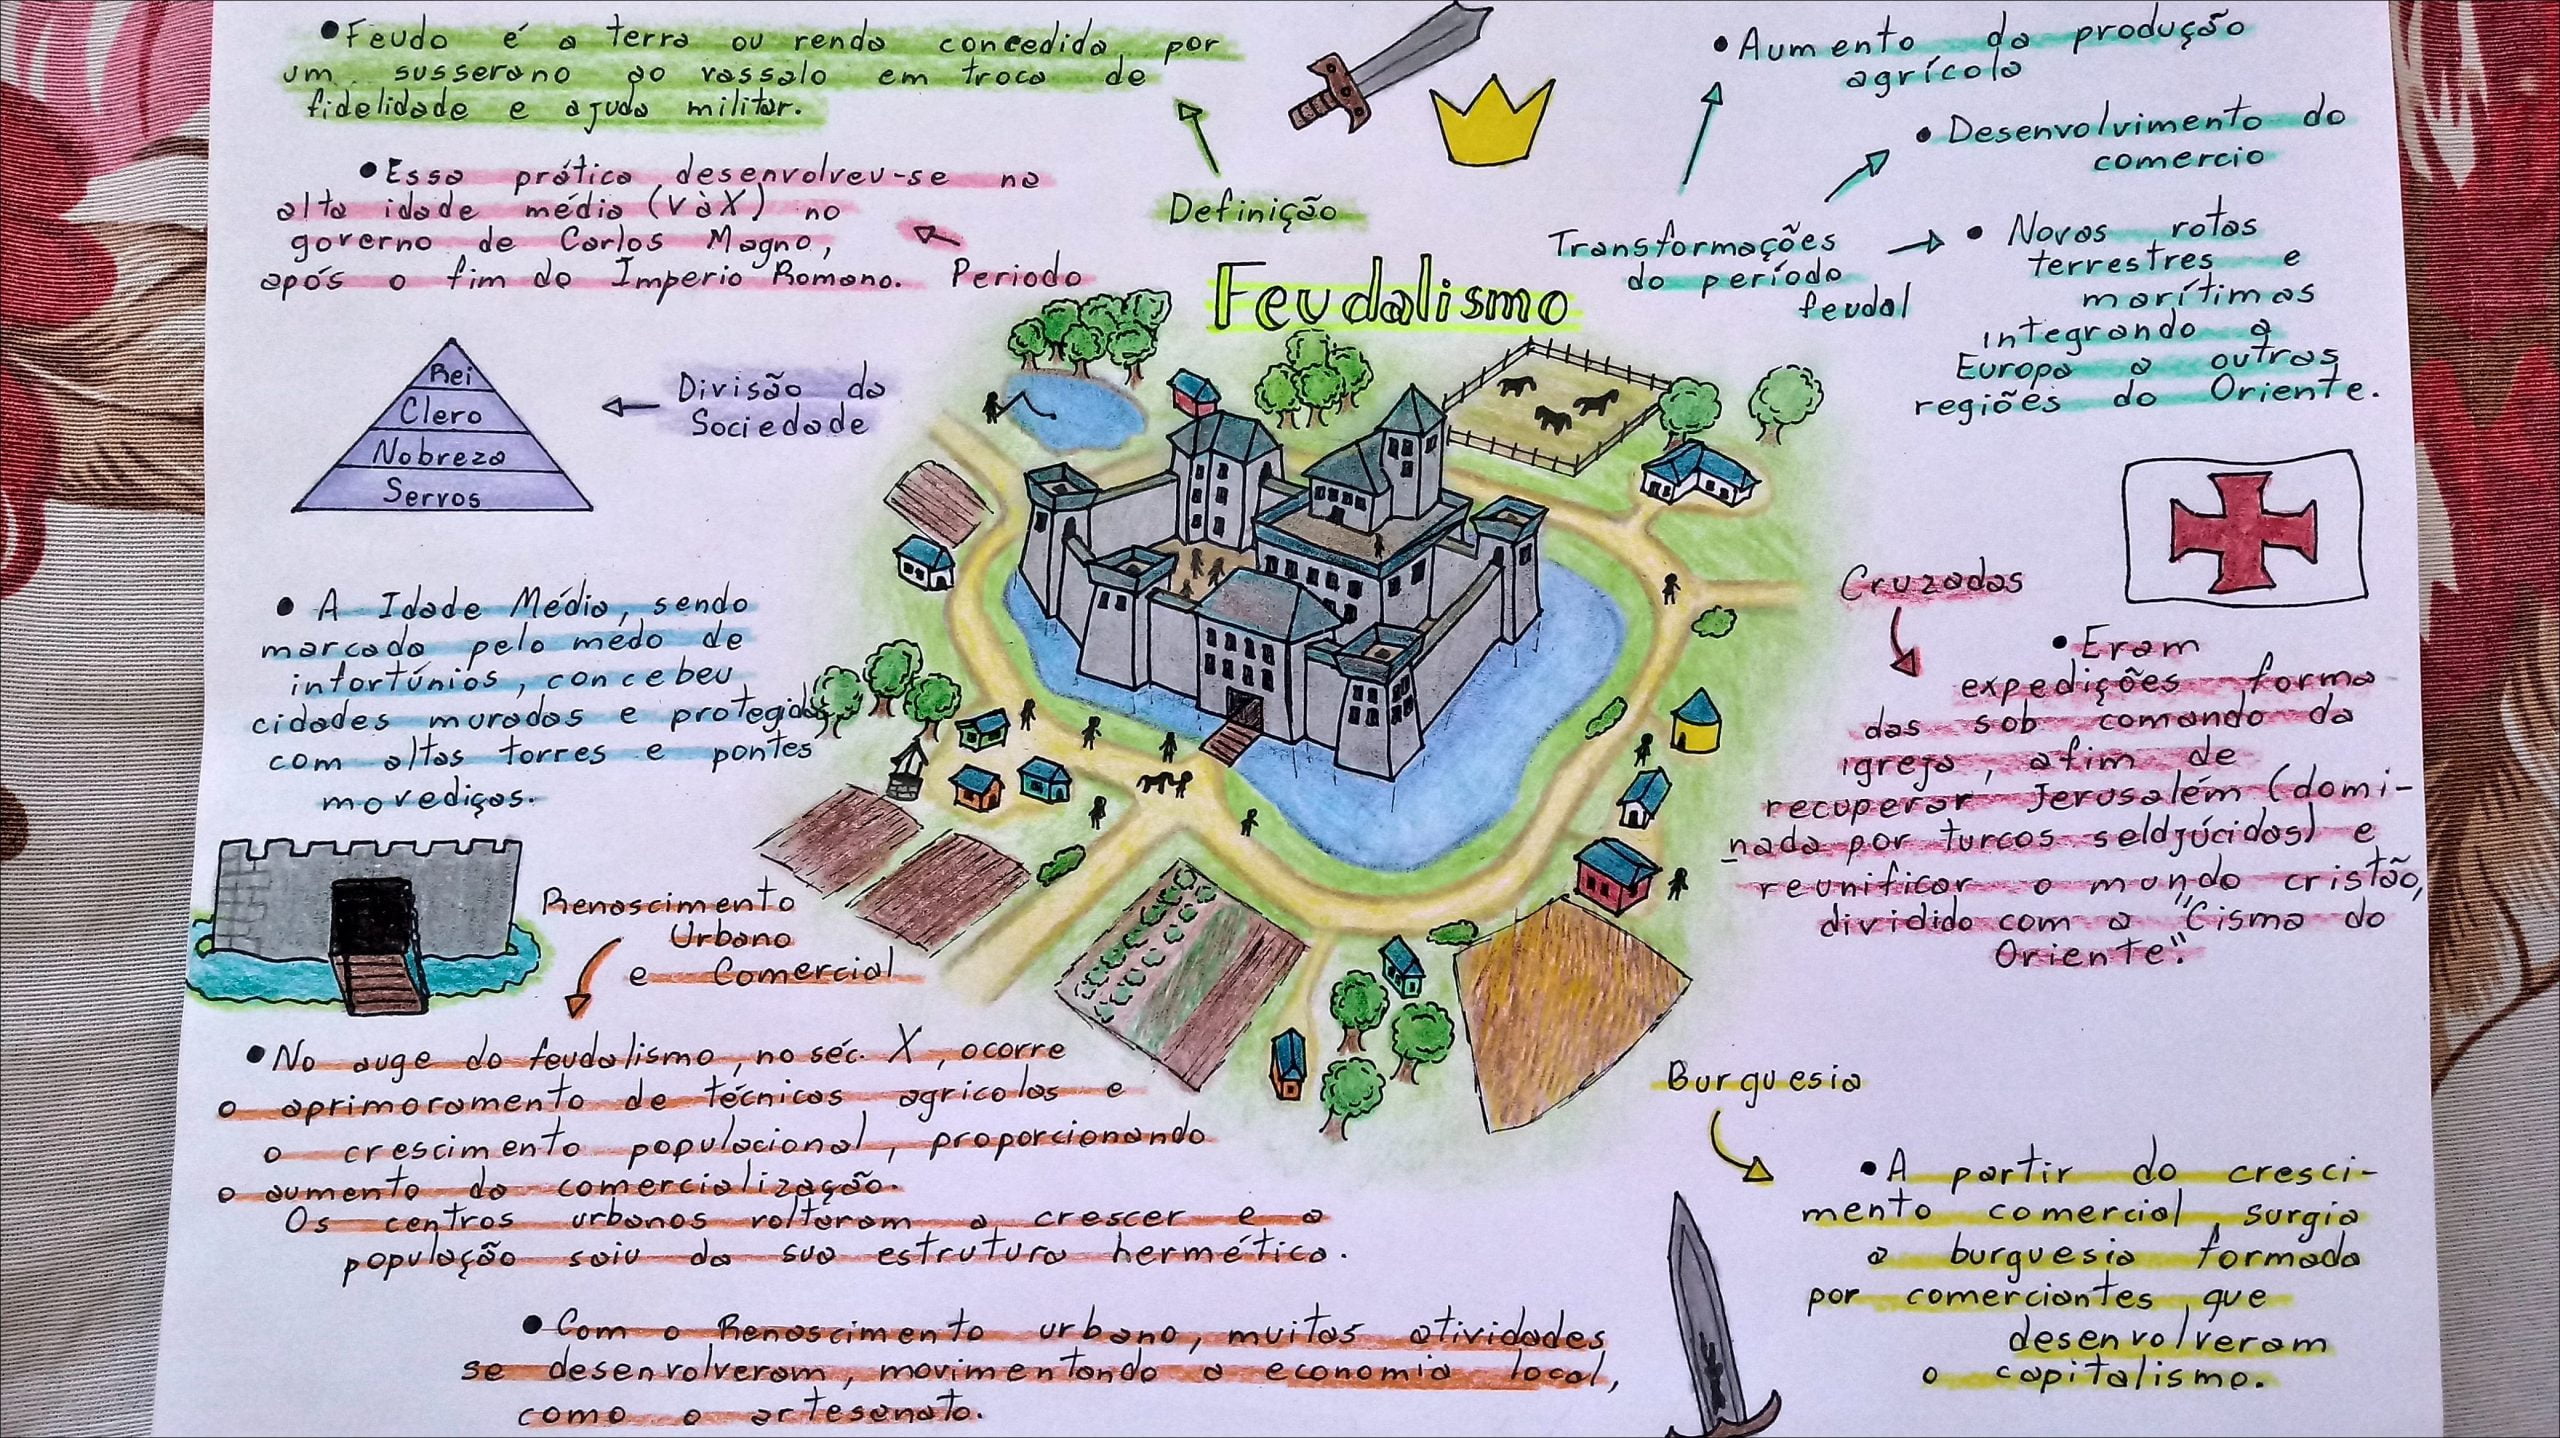 Feudalismo
Definição
•Feudo é a terra ou renda concedida por
um susserano ao vassalo em troca de
fidelidade e ajuda militar.
Periodo
•Essa prática desenvolveu-se na
alta idade média (V à X) no
governo de Carlos Magno,
após o fim do Imperio Romano.
Divisão da
Sociedade
Rei
Clero
Nobreza
Servos
• A Idade Média, sendo
marcada pelo medo de
infortúnios, concebeu
cidades muradas e protegidas
com altas torres e pontes
movediças.
Renascimento
Urbano
e Comercial
•No auge do feudalismo, no séc. X, ocorre
o aprimoramento de técnicas agrícolas e
o crescimento populacional, proporcionando
o aumento da comercialização.
Os centros urbanos voltaram a crescer e a
população saiu da sua estrutura hermética.
•Com o Renascimento urbano, muitas atividades
se desenvolveram, movimentando a economia local,
como o artesanato.
Transformações
do período
feudal
•Aumento da produção
agrícola
•Desenvolvimento do
comercio
• Novas rotas
terrestres e
marítimas
integrando a
Europa a outras
regiões do Oriente.
Cruzadas
•Eram
expedições forma
das sob comando da
igreja, afim de
recuperar Jerusalém (domi-
nada por turcos seldjúcidas) e
reunificar o mundo cristão,
dividido com a "Cisma do
Oriente".
Burguesia
•A partir do cresci-
mento comercial, surgia
a burguesia formada
por comerciantes que
desenvolveram
o capitalismo.